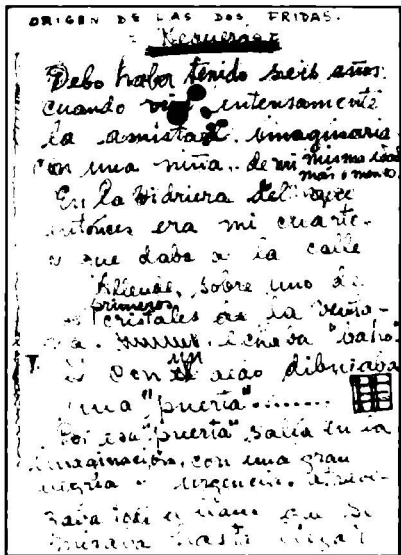 ORIGEN DE LAS DOS FRIDAS.
= Recuerdo=
Debo haber tenido seis años
cuando viví intensamente
la amistad imaginaria
con una niña.. de mi misma edad
más o menos.
En la vidriera del que
entonces era mi cuarto-
y que daba a la calle
Allende, sobre uno de
primeros
cristales de la venta-
na. echaba "vaho".
un
Y con dedo dibujaba
una "puerta".......
Por esa "puerta" salía en la
imaginación, con una gran
alegría urgencia. atrave-
zaba todo el llano que se
miraba hasta llegar